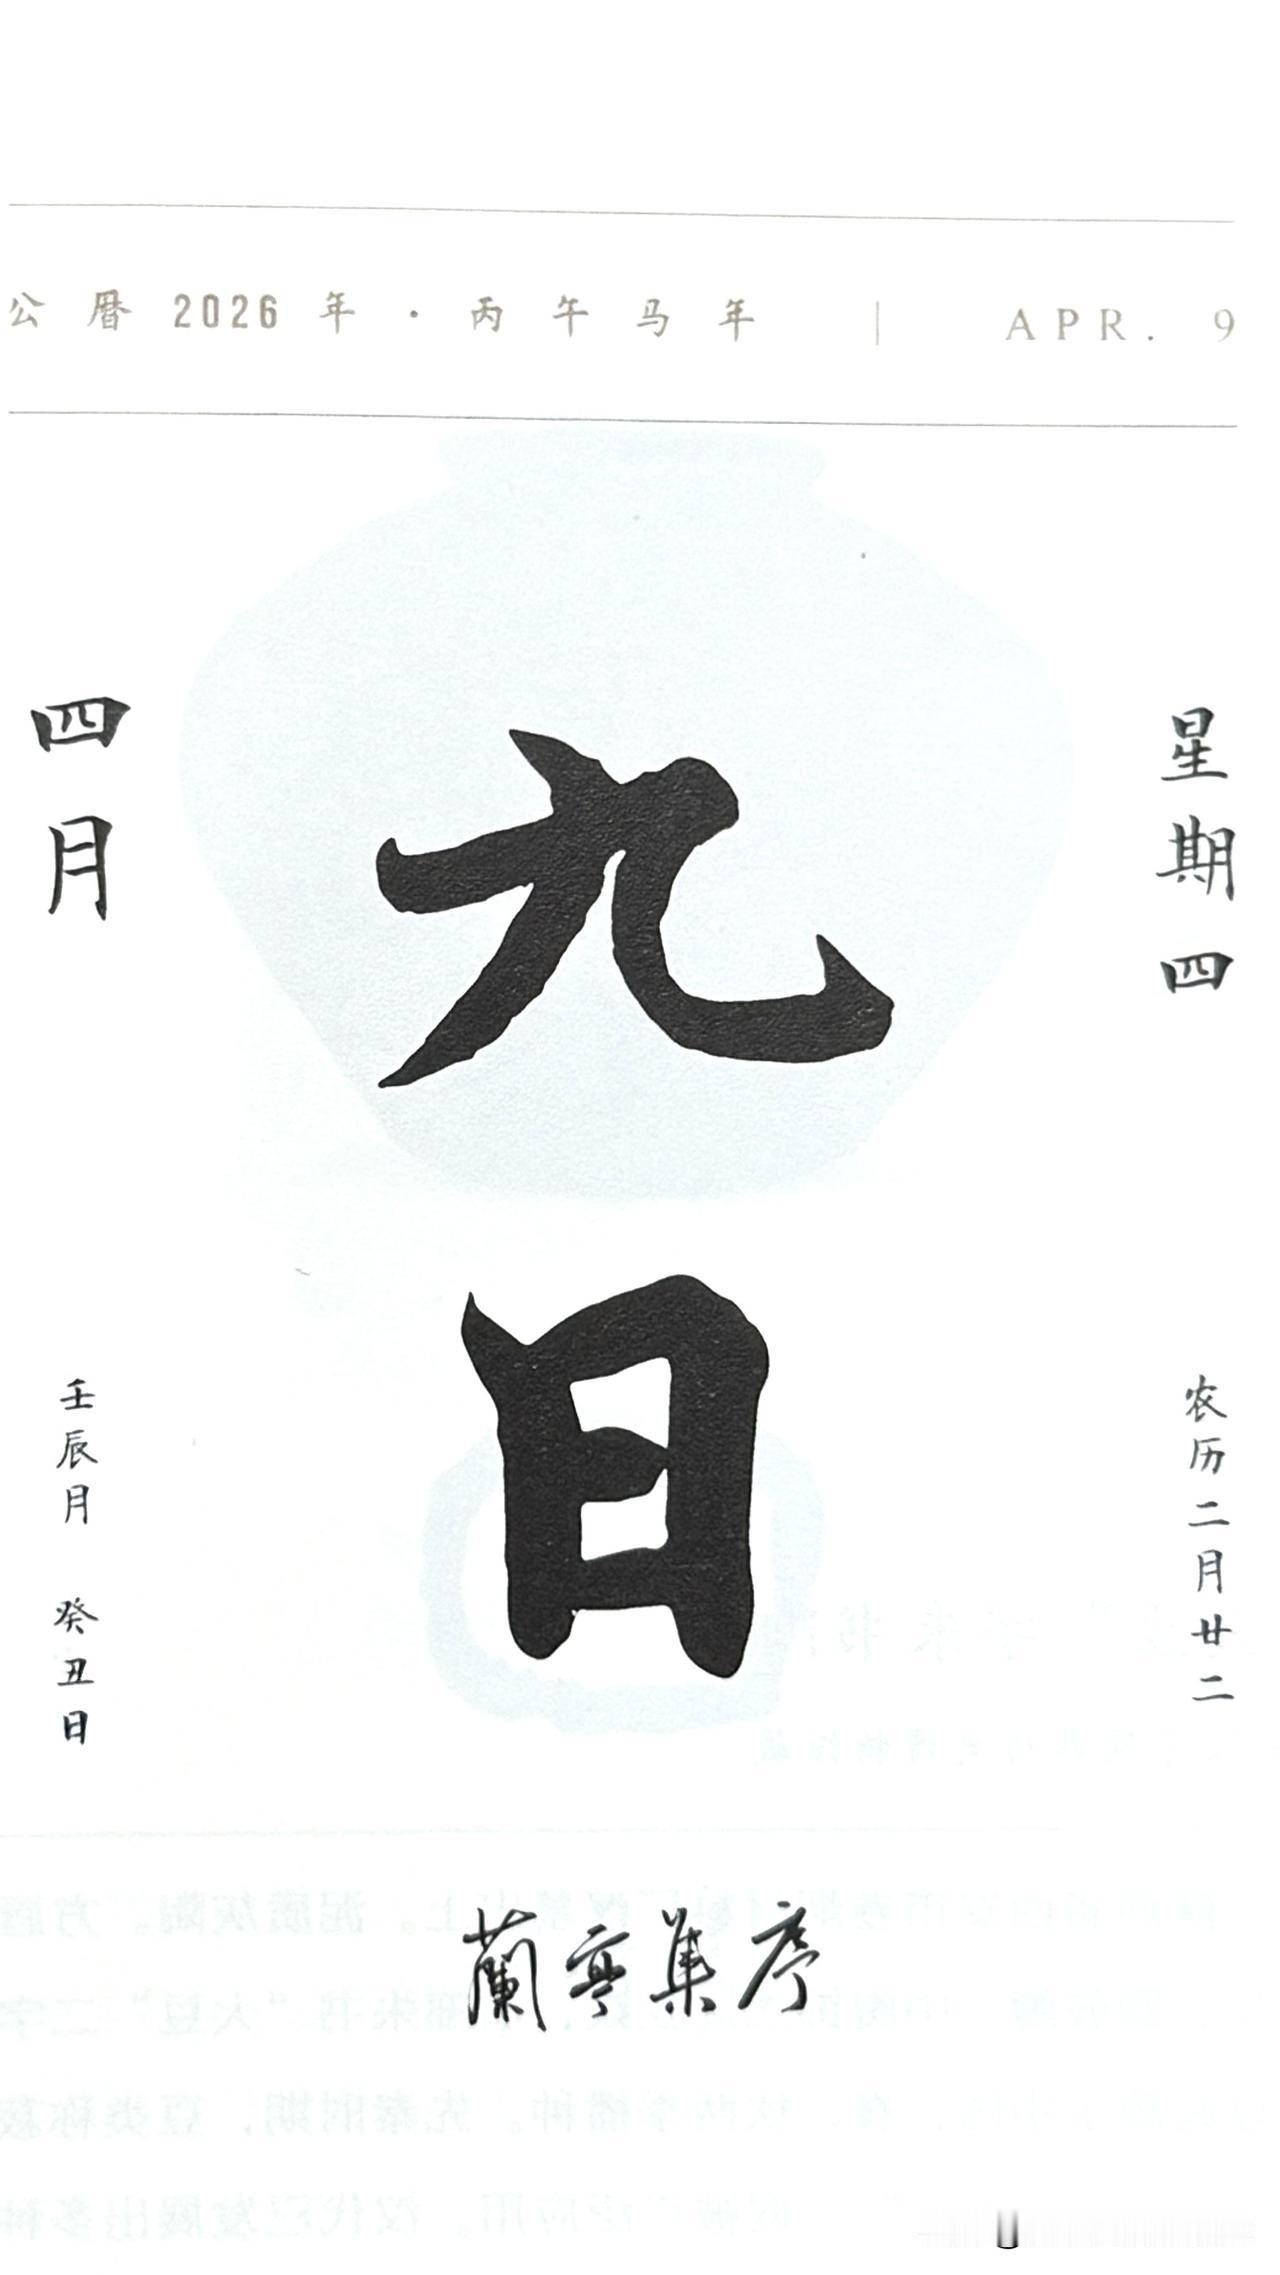 公曆2026年·丙午马年 | APR. 9
四月
星期四
九日
壬辰月 癸丑日
农历二月廿二
蘭亭集序